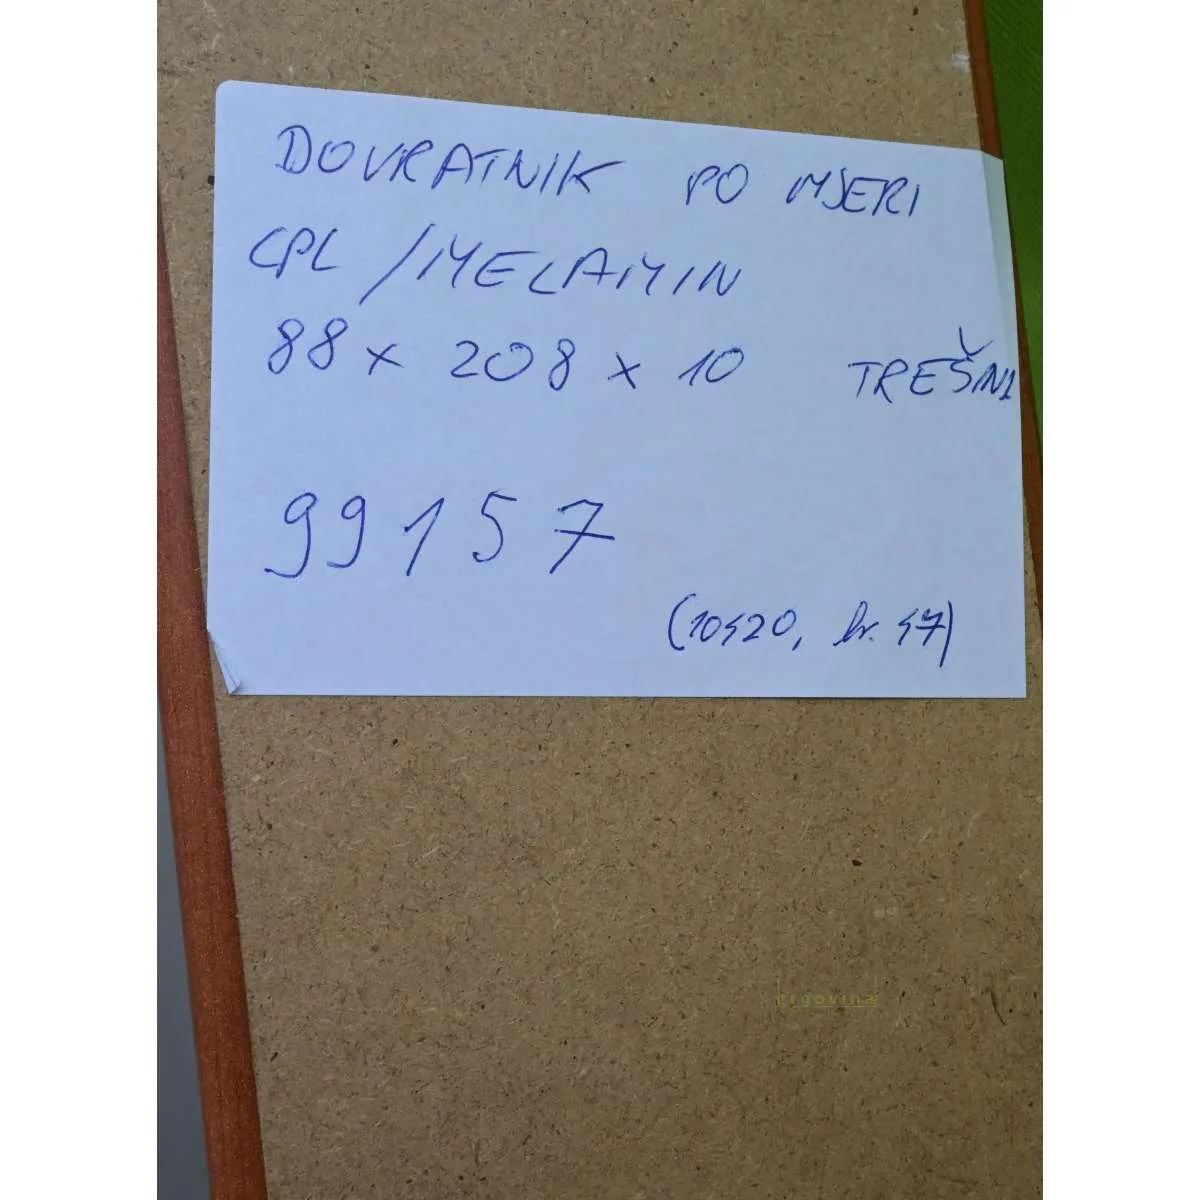 DOVRATNIK PO MJERI
CPL / MELAMIN
88 x 208 x 10 TREŠNJ
99157
(10520, br. 57)
trgovina